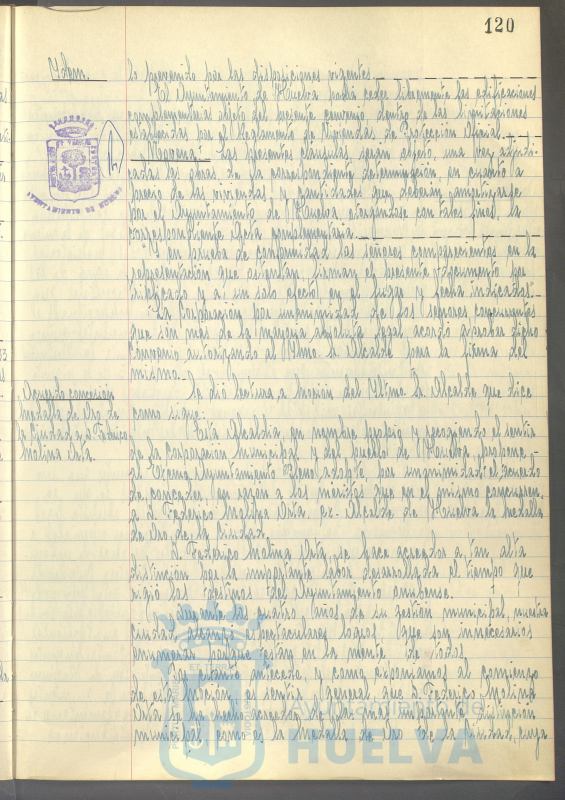 120
Idem.
lo prevenido por las disposiciones vigentes.
El Ayuntamiento de Huelva podrá ceder libremente las edificaciones
complementarias objeto del presente convenio dentro de las limitaciones
establecidas por el Reglamento de Viviendas de Protección Oficial.
Novena.- Las presentes cláusulas, serán objeto, una vez adjudi-
cadas las obras de la correspondiente determinación, en cuanto a
precio de las viviendas y cantidades que deberán amortizarse
por el Ayuntamiento de Huelva, otorgándose con tales fines, la
correspondiente Acta complementaria.
Y en prueba de conformidad los señores comparecientes en la
representación que ostentan, firman el presente documento por
triplicado y a un solo efecto, en el lugar y fecha indicados".
La Corporación por unanimidad de los señores concurrentes
que son más de la mayoría absoluta legal acordó aprobar dicho
Convenio autorizando al Iltmo. Sr. Alcalde para la firma del
mismo.
Acuerdo concesión
Medalla de Oro de
la Ciudad a D. Federico
Molina Orta.
Se dio lectura a Moción del Iltmo. Sr. Alcalde que dice
como sigue:
"Esta Alcaldía, en nombre propio y recogiendo el sentir
de la Corporación Municipal y del pueblo de Huelva, propone
al Excmo. Ayuntamiento Pleno adopte por unanimidad el acuerdo
de conceder, en razón a los méritos que en el mismo concurren,
a D. Federico Molina Orta, ex-Alcalde de Huelva la Medalla
de Oro de la Ciudad.
D. Federico Molina Orta, se hace acreedor a tan alta
distinción por la importante labor desarrollada el tiempo que
rigió los destinos del Ayuntamiento onubense.
Durante los cuatro años de su gestión municipal, nuestra
ciudad alcanzó espectaculares logros, que son innecesarios
enumerar porque están en la mente de todos.
Por cuanto antecede, y como exponíamos al comienzo
de esta Moción, es sentir general que D. Federico Molina
Orta se ha hecho acreedor de la más preciada distinción
municipal como es la Medalla de Oro de la Ciudad, cuya
AYUNTAMIENTO DE HUELVA
Ayuntamiento de
HUELVA